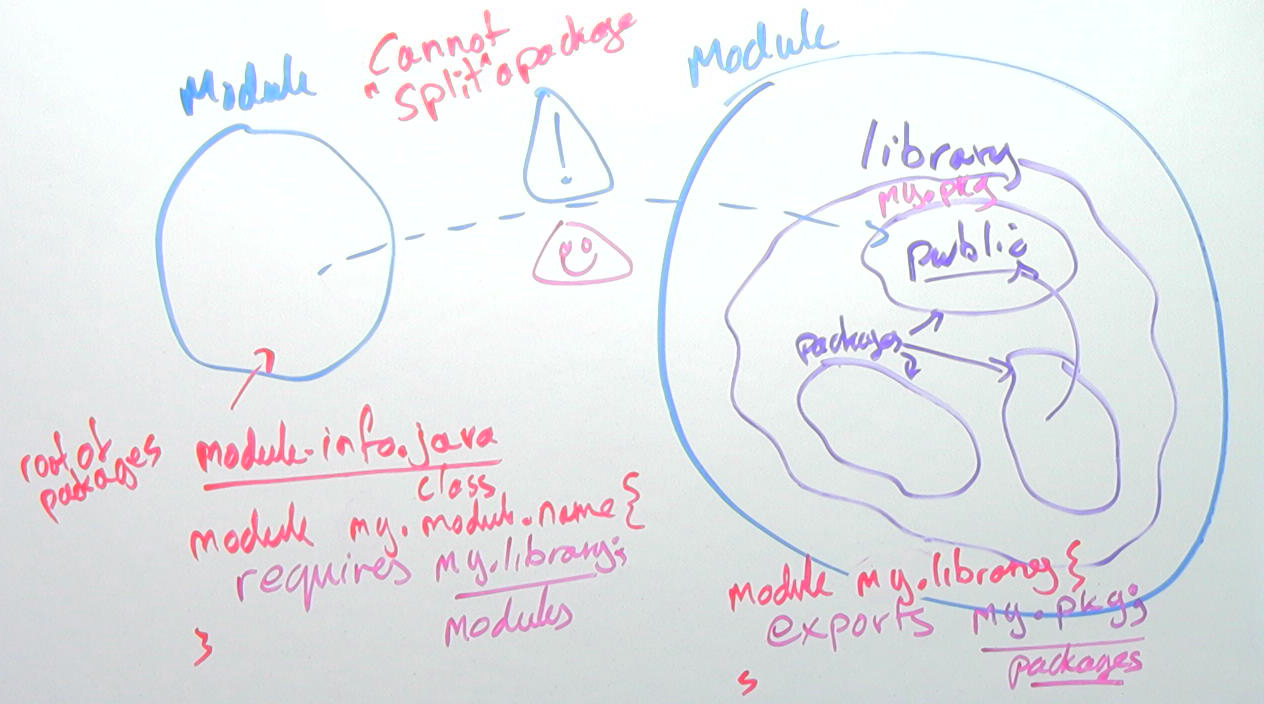 Module
Cannot
"split" a package
!
Module
library
my.pkg
public
packages
root of
packages
module-info.java
class
module my.module.name {
requires my.library;
modules
}
module my.library {
exports my.pkg;
packages
}